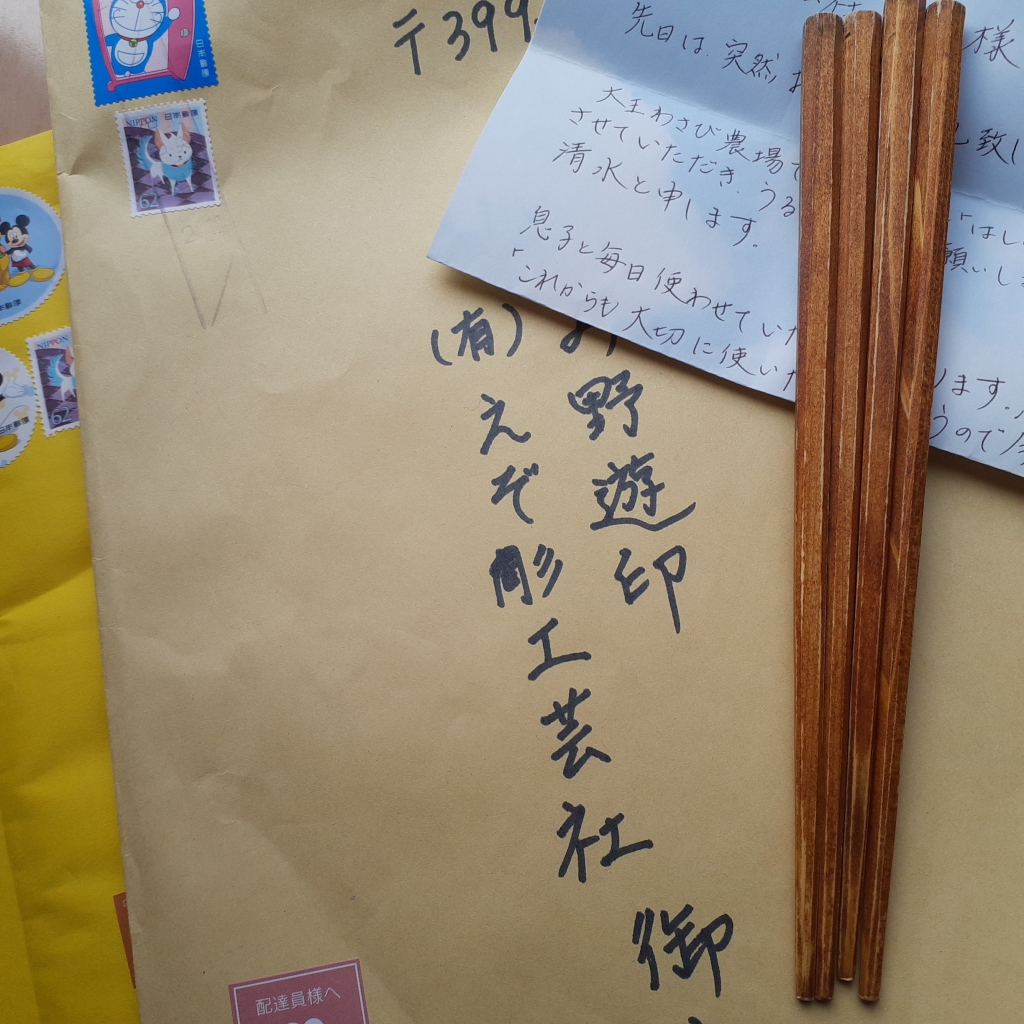 日本郵便
NIPPON 日本郵便
62
〒399
先日は、突然
様
大王わさび農場で
させていただき、うる
清水と申します。
息子と毎日使わせていた
「これからも大切に使いた
願いしま
ります。
うので
野遊印
(有)えぞ彫工芸社
御
配達員様へ
NIPPON
62